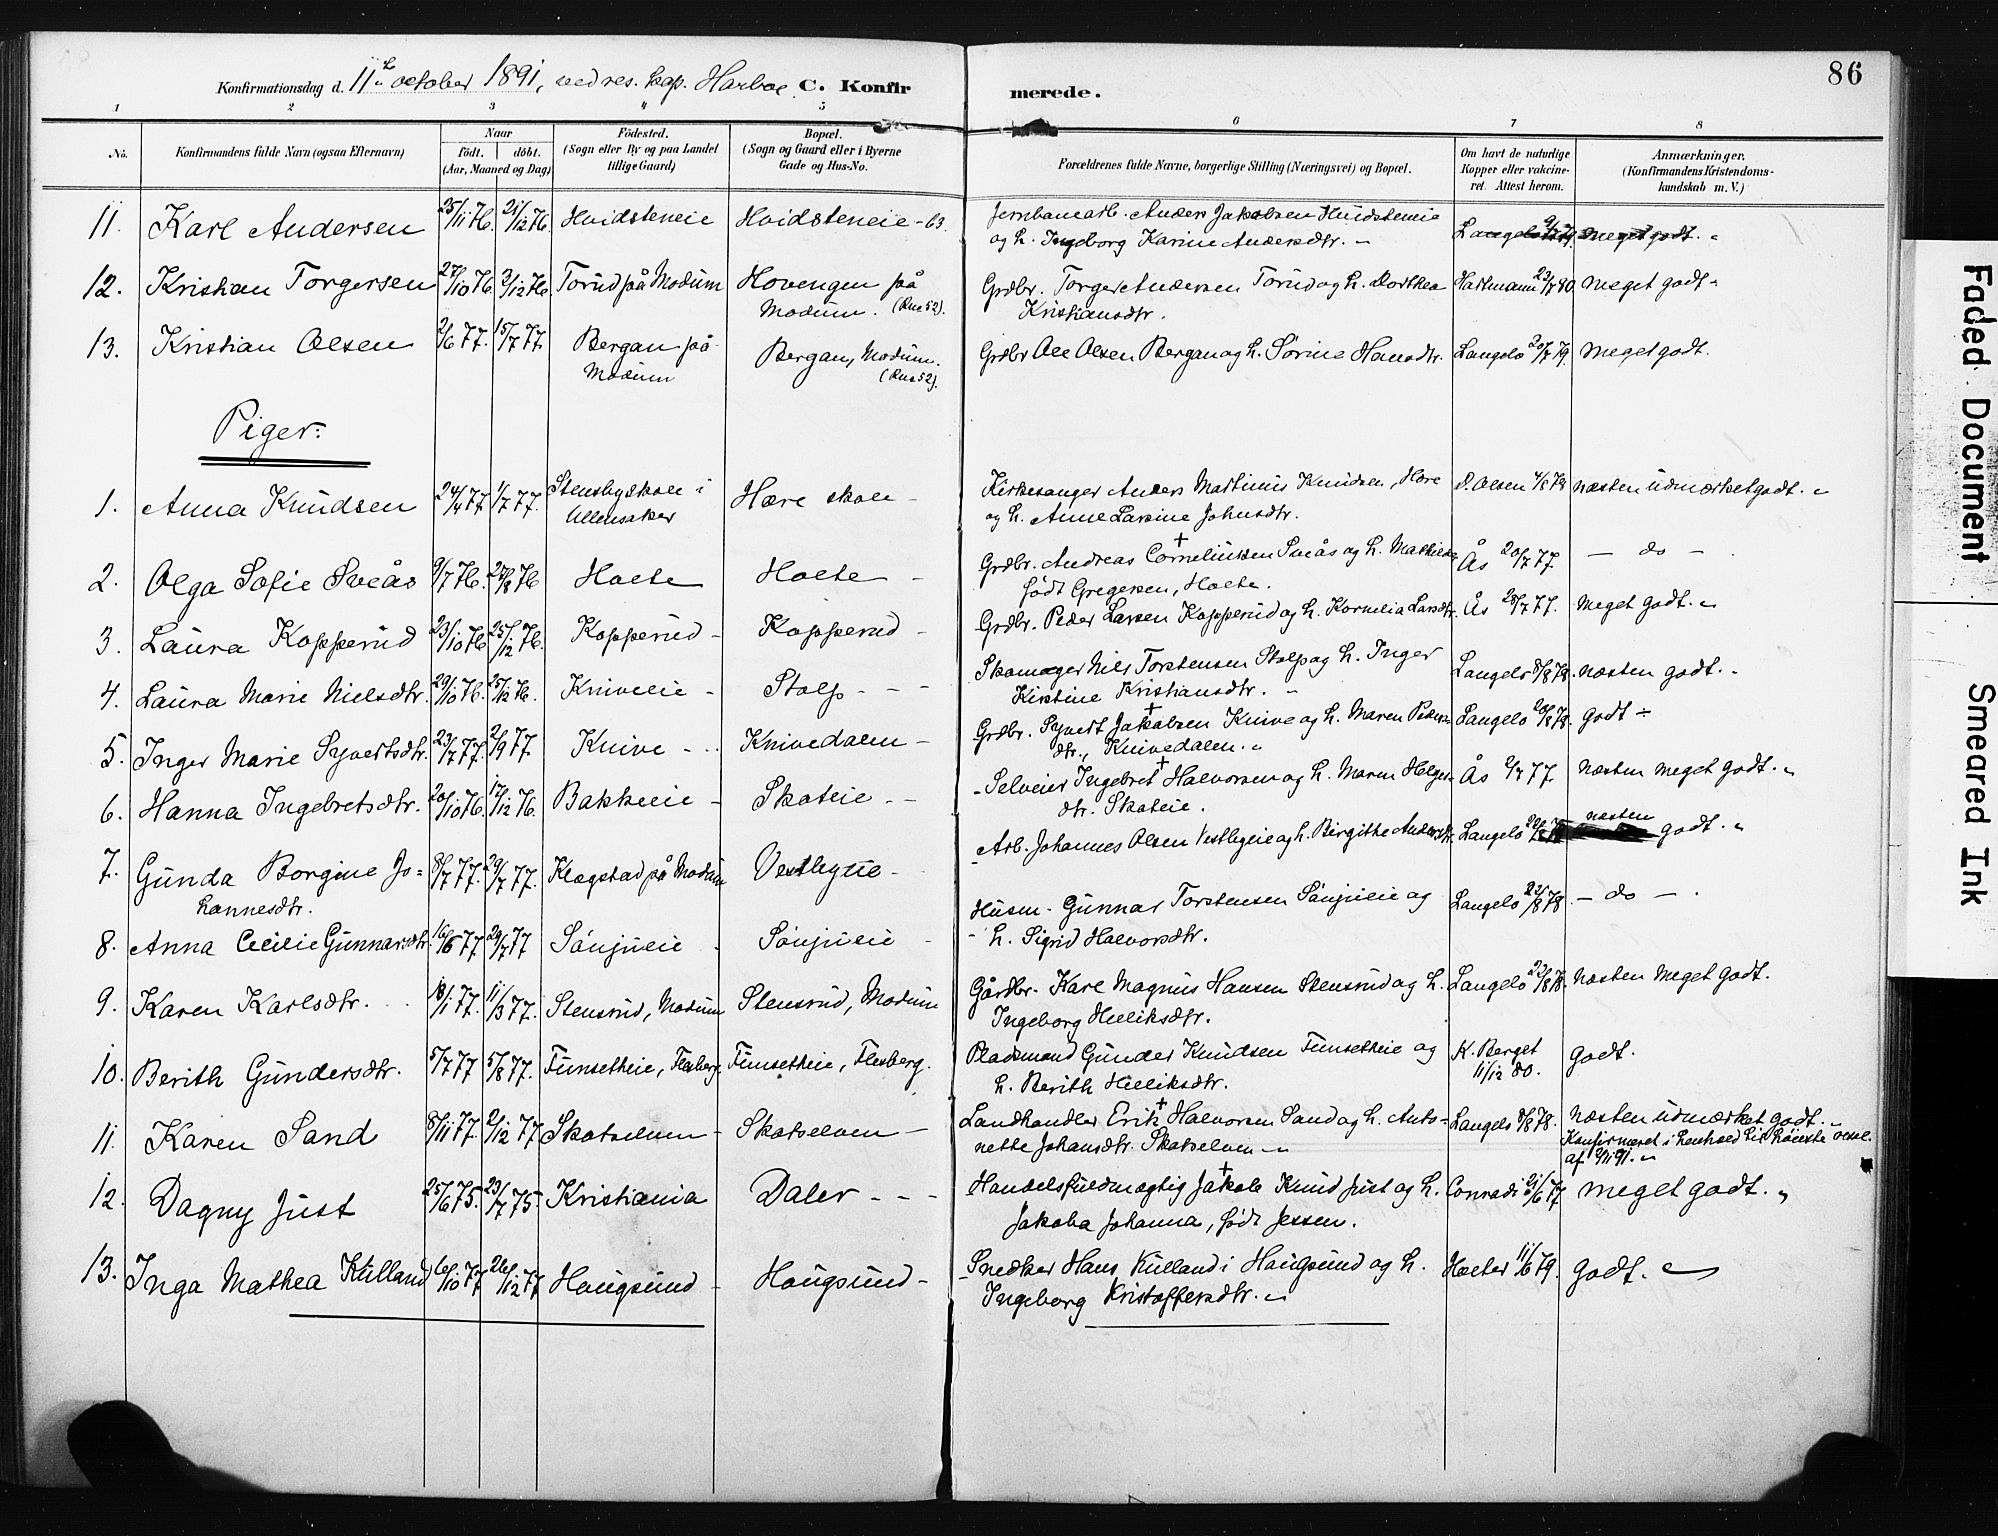 86
Konfirmationsdag d. 11te october 1891, ved res. kap. Harboe C. Konfirmerede.
1 2 3 " 5 6 7 8
No. Konfirmandens fulde Navn (ogsaa Efternavn) Naar födt. döbt. (Aar, Maaned og Dag) Födested. (Sogn eller By og paa Landet tillige Gaard) Bopæl. (Sogn og Gaard eller i Byerne Gade og Hus-No. Forældrenes fulde Navne, borgerlige Stilling (Næringsvei) og Bopæl. Om havt de naturlige Kopper eller vakcineret. Attest herom. Anmærkninger. (Konfirmandens Kristendomskundskab m. V.)
11. Karl Andersen 25/11 76. 21/12 76. Hvidsteneie Hvidsteneie - 63. Jernbanearb. Anders Jakobsen Hvidsteneie
og h. Ingeborg Karine Andersdtr. Langelo meget godt.
12. Kristian Torgersen 27/10 76. 3/12 76. Torud på Modum Hovengen på Modum. (Rus 52). Grdbr. Torger Andersen Torud og h. Dorthea
Kristiansdtr. Hartmann 23/7 80 meget godt
13. Kristian Olsen 2/6 77. 15/7 77. Bergan på Modum Bergan, Modum. (Rus 52). Grdbr Ole Olsen Bergan og h. Sørine Hansdtr. Langelo 20/7 79. meget godt.
Piger:
1. Anna Knudsen 24/4 77 1/7 77. Stensbyskole i Ullensaker Hære skole Kirkesanger Anders Martinus Knudsen, Hære
og h. Anne Larsine Johnsdtr. O. Olsen 4/8 78 næsten udmærketgodt.
2. Olga Sofie Sveås 9/7 76. 27/8 76 Holte Holte Grdbr. Andreas Corneliussen Sveås og h. Mathilde
født Gregersen, Holte. Ås 20/7 77. — do —
3. Laura Kopperud 23/10 76. 25/12 76. Kopperud Kopperud Grdbr. Peder Larsen Kopperud og h. Kornelia Larsdtr. Ås 28/7 77. Meget godt.
4. Laura Marie Nielsdtr. 29/10 76. 25/12 76. Kniveeie Stolp Skomager Nils Torstensen Stolp og h. Inger
Kirstine Kristiansdtr. Langelo 8/8 78. næsten godt.
5. Inger Marie Syvertsdtr. 23/7 77. 2/9 77 Knive Knivedalen Grdbr. Syvert Jakobsen Knive og h. Maren Pedersdtr.,
Knivedalen. Langelo 20/8 78. godt
6. Hanna Ingebretsdtr. 20/10 76. 17/12 76. Bakkeeie Skoteie Selveier Ingebret Halvorsen og h. Maren Helgesdtr.
Skoteie. Ås 2/7 77 Næsten meget godt.
7. Gunda Borgine Johannesdtr. 8/7 77. 29/7 77. Klogstad på Modum Vestbyeie Arb. Johannes Olsen Vestbyeie og h. Birgitte Andersdtr. Langelo næsten godt.
8. Anna Cecilie Gunnarsdtr. 16/6 77 29/7 77 Sønjueie Sønjueie Husm. Gunnar Torstensen Sønjueie og
h. Sigrid Halvorsdtr. Langelo 22/8 78. — do —
9. Karen Karlsdtr. 18/1 77. 11/3 77. Stensrud, Modum Stensrud, Modum Gårdbr. Karl Magnus Hansen Stensrud og h.
Ingeborg Helliksdtr. Langelo 23/8 78. Næsten meget godt.
10. Berith Gundersdtr. 5/7 77 5/8 77. Funsetheie, Flesberg. Funsetheie, Flesberg. Pladsmand Gunder Knudsen Funsetheie og
h. Berith Helliksdtr. K. Berget 11/12 80. godt.
11. Karen Sand 8/11 77. 9/12 77. Skotselven Skotselven Landhandler Erik Halvorsen Sand og h. Antonette
Johansdtr. Skotselven Langelo 8/8 78. næsten udmærket godt.
Konfirmeret i henhold til høieste resol. af 9/11 91.
12. Dagny Just 25/6 75. 23/7 75. Kristiania Daler Handelsfuldmægtig Jakob Knud Just og h.
Jakoba Johanna, født Jessen. Conradi 21/6 77. meget godt.
13. Inga Mathea Kulland 16/10 77. 26/12 77 Hougsund Hougsund Snedker Hans Kulland i Hougsund og h.
Ingeborg Kristoffersdtr. Holter 11/6 79. godt.
Faded Document
Smeared Ink